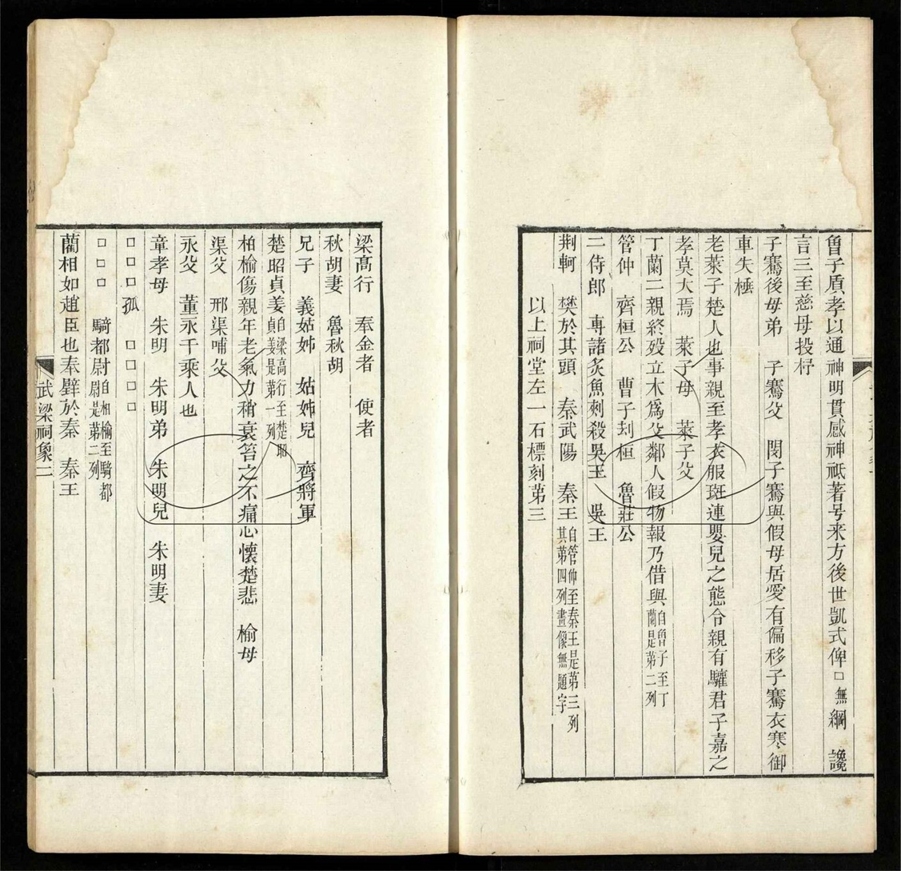 曾子質孝以通神明貫感神祇著号来方後世凱式俾□無綱　讒
言三至慈母投杼
子騫後母弟　子騫父　閔子騫與假母居愛有偏移子騫衣寒御
車失棰
老萊子楚人也事親至孝衣服斑連嬰兒之態令親有驩君子嘉之
孝莫大焉　萊子母　萊子父
丁蘭二親終殁立木爲父鄰人假物報乃借與自曾子至丁蘭是第二列
管仲　齊桓公　曹子刦桓　魯莊公
二侍郎　專諸炙魚刺殺吳王　吳王
荆軻　樊於其頭　秦武陽　秦王自管仲至秦王是第三列其第四列畫像無題字
以上祠堂左一石標刻第三
梁高行　奉金者　使者
秋胡妻　魯秋胡
兄子　義姑姊　姑姊兒　齊將軍
楚昭貞姜自梁高行至楚昭貞姜是第一列
柏榆傷親年老氣力稍衰笞之不痛心懷楚悲　榆母
渠父　邢渠哺父
永父　董永千乘人也
章孝母　朱明　朱明弟　朱明兒　朱明妻
□□□孤　□□□□
□□□　騎都尉自柏榆至騎都尉是第二列
藺相如趙臣也奉璧於秦　秦王
武梁祠像二